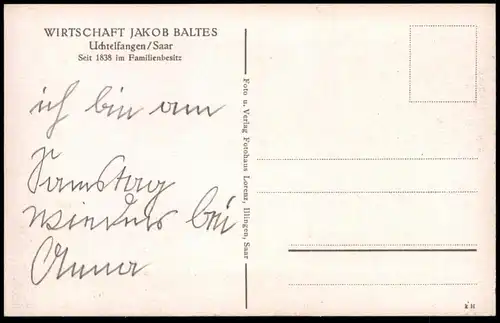 WIRTSCHAFT JAKOB BALTES
Uchtelfangen/Saar
Seit 1838 im Familienbesitz
ich bin am
Samstag
wieder bei
Anna
Foto u. Verlag Fotohaus Lorenz, Illingen, Saar